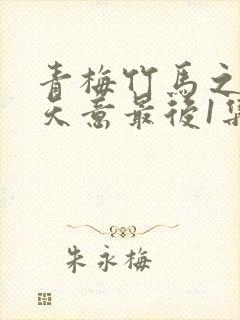 青梅竹馬之
天意最後1集
朱永梅